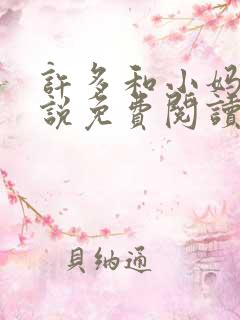 許多和小妈
説免費閱讀
貝納通